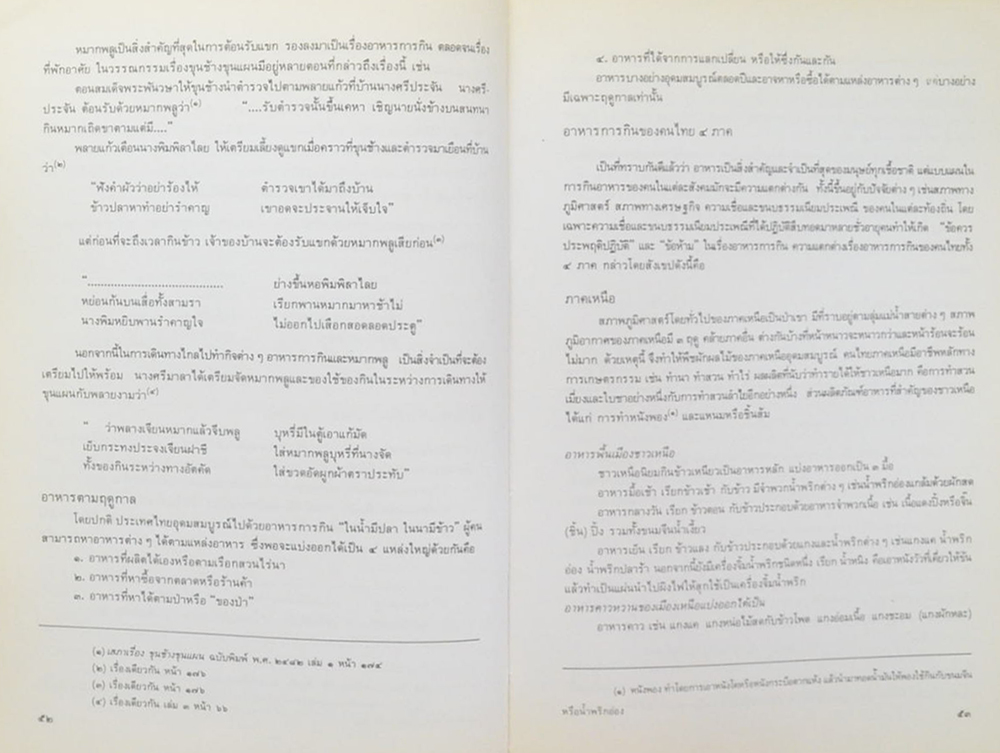 หมากพลูเป็นสิ่งสำคัญที่สุดในการต้อนรับแขก รองลงมาเป็นเรื่องอาหารการกิน ตลอดจนเรื่อง
ที่พักอาศัย ในวรรณกรรมเรื่องขุนช้างขุนแผนมีอยู่หลายตอนที่กล่าวถึงเรื่องนี้ เช่น
ตอนสมเด็จพระพันวษาให้ขุนช้างนำตำรวจไปตามพลายแก้วที่บ้านนางศรีประจัน นางศรี-
ประจัน ต้อนรับด้วยหมากพลูว่า(๑) "....รับตำรวจนั้นขึ้นเคหา เชิญนายนั่งข้างบนสนทนา
กินหมากเถิดขาตามแต่มี...."
พลายแก้วเตือนนางพิมพิลาไลย ให้เตรียมเลี้ยงดูแขกเมื่อคราวที่ขุนช้างและตำรวจมาเยือนที่บ้าน
ว่า(๒)
"ฟังคำผัวว่าอย่าร้องไห้ ตำรวจเขาได้มาถึงบ้าน
ข้าวปลาหาทำอย่ารำคาญ เขาอดจะประจานให้เจ็บใจ"
แต่ก่อนที่จะถึงเวลากินข้าว เจ้าของบ้านจะต้องรับแขกด้วยหมากพลูเสียก่อน(๓)
"........................................ ย่างขึ้นหอพิมพิลาไลย
หย่อนก้นบนเสื่อทั้งสามรา เรียกพานหมากมาหาช้าไม่
นางพิมหยิบพานรำคาญใจ ไม่ออกไปเสือกสอดลอดประตู"
นอกจากนี้ในการเดินทางไกลไปทำกิจต่าง ๆ อาหารการกินและหมากพลู เป็นสิ่งจำเป็นที่จะต้อง
เตรียมไปให้พร้อม นางศรีมาลาได้เตรียมจัดหมากพลูและของใช้ของกินในระหว่างการเดินทางให้
ขุนแผนกับพลายงามว่า(๔)
" ว่าพลางเจียนหมากแล้วจีบพลู บุหรี่มีในตู้เอาแก้มัด
เย็บกระทงประจงเจียนฝาชี ใส่หมากพลูบุหรี่ที่นางจัด
ทั้งของกินระหว่างทางอัตคัด ใส่ขวดอัดผูกผ้าตราประทับ"
อาหารตามฤดูกาล
โดยปกติ ประเทศไทยอุดมสมบูรณ์ไปด้วยอาหารการกิน "ในน้ำมีปลา ในนามีข้าว" ผู้คน
สามารถหาอาหารต่าง ๆ ได้ตามแหล่งอาหาร ซึ่งพอจะแบ่งออกได้เป็น ๔ แหล่งใหญ่ด้วยกันคือ
๑. อาหารที่ผลิตได้เองหรือตามเรือกสวนไร่นา
๒. อาหารที่หาซื้อจากตลาดหรือร้านค้า
๓. อาหารที่หาได้ตามป่าหรือ "ของป่า"
(๑) เสภาเรื่อง ขุนช้างขุนแผน ฉบับพิมพ์ พ.ศ. ๒๔๘๒ เล่ม ๑ หน้า ๑๗๔
(๒) เรื่องเดียวกัน หน้า ๑๗๖
(๓) เรื่องเดียวกัน หน้า ๑๗๖
(๔) เรื่องเดียวกัน เล่ม ๓ หน้า ๖๖
๕๒
๔. อาหารที่ได้จากการแลกเปลี่ยน หรือให้ซึ่งกันและกัน
อาหารบางอย่างอุดมสมบูรณ์ตลอดปีและอาจหาหรือซื้อได้ตามแหล่งอาหารต่าง ๆ แต่บางอย่าง
มีเฉพาะฤดูกาลเท่านั้น
อาหารการกินของคนไทย ๔ ภาค
เป็นที่ทราบกันดีแล้วว่า อาหารเป็นสิ่งสำคัญและจำเป็นที่สุดของมนุษย์ทุกเชื้อชาติ แต่แบบแผนใน
การกินอาหารของคนในแต่ละสังคมมักจะมีความแตกต่างกัน ทั้งนี้ขึ้นอยู่กับปัจจัยต่าง ๆ เช่นสภาพทาง
ภูมิศาสตร์ สภาพทางเศรษฐกิจ ความเชื่อและขนบธรรมเนียมประเพณี ของคนในแต่ละท้องถิ่น โดย
เฉพาะความเชื่อและขนบธรรมเนียมประเพณีที่ได้ปฏิบัติสืบทอดมาหลายชั่วอายุคนทำให้เกิด "ข้อควร
ประพฤติปฏิบัติ" และ "ข้อห้าม" ในเรื่องอาหารการกิน ความแตกต่างเรื่องอาหารการกินของคนไทยทั้ง
๔ ภาค กล่าวโดยสังเขปดังนี้คือ
ภาคเหนือ
สภาพภูมิศาสตร์โดยทั่วไปของภาคเหนือเป็นป่าเขา มีที่ราบอยู่ตามลุ่มแม่น้ำสายต่าง ๆ สภาพ
ภูมิอากาศของภาคเหนือมี ๓ ฤดู คล้ายภาคอื่น ต่างกันบ้างที่หน้าหนาวจะหนาวกว่าและหน้าร้อนจะร้อน
ไม่มาก ด้วยเหตุนี้ จึงทำให้พืชผักผลไม้ของภาคเหนืออุดมสมบูรณ์ คนไทยภาคเหนือมีอาชีพหลักทาง
การเกษตรกรรม เช่น ทำนา ทำสวน ทำไร่ ผลผลิตที่นับว่าทำรายได้ให้ชาวเหนือมาก คือการทำสวน
เมี่ยงและใบชาอย่างหนึ่งกับการทำสวนลำไยอีกอย่างหนึ่ง ส่วนผลิตภัณฑ์อาหารที่สำคัญของชาวเหนือ
ได้แก่ การทำหนังพอง(๑) และแหนมหรือชิ้นส้ม
อาหารพื้นเมืองชาวเหนือ
ชาวเหนือนิยมกินข้าวเหนียวเป็นอาหารหลัก แบ่งอาหารออกเป็น ๓ มื้อ
อาหารมื้อเช้า เรียกข้าวเช้า กับข้าว มีจำพวกน้ำพริกต่าง ๆ เช่นน้ำพริกอ่องแกล้มด้วยผักสด
อาหารกลางวัน เรียก ข้าวตอน กับข้าวประกอบด้วยอาหารจำพวกเนื้อ เช่น เนื้อแดงปิ้งหรือจิ้น
(ชิ้น) ปิ้ง รวมทั้งขนมจีนน้ำเงี้ยว
อาหารเย็น เรียก ข้าวแลง กับข้าวประกอบด้วยแกงและน้ำพริกต่าง ๆ เช่นแกงแค น้ำพริก
อ่อง น้ำพริกปลาร้า นอกจากนี้ยังมีเครื่องจิ้มน้ำพริกชนิดหนึ่ง เรียก น้ำหนัง คือเอาหนังวัวที่เคี่ยวให้ข้น
แล้วทำเป็นแผ่นนำไปผิงไฟให้สุกใช้เป็นเครื่องจิ้มน้ำพริก
อาหารคาวหวานของเมืองเหนือแบ่งออกได้เป็น
อาหารคาว เช่น แกงแค แกงหน่อไม้สดกับข้าวโพด แกงอ่อมเนื้อ แกงชะอม (แกงผักหละ)
(๑) หนังพอง ทำโดยการเอาหนังโคหรือหนังกระบือตากแห้ง แล้วนำมาทอดน้ำมันให้พองใช้กินกับขนมจีน
หรือน้ำพริกอ่อง
๕๓